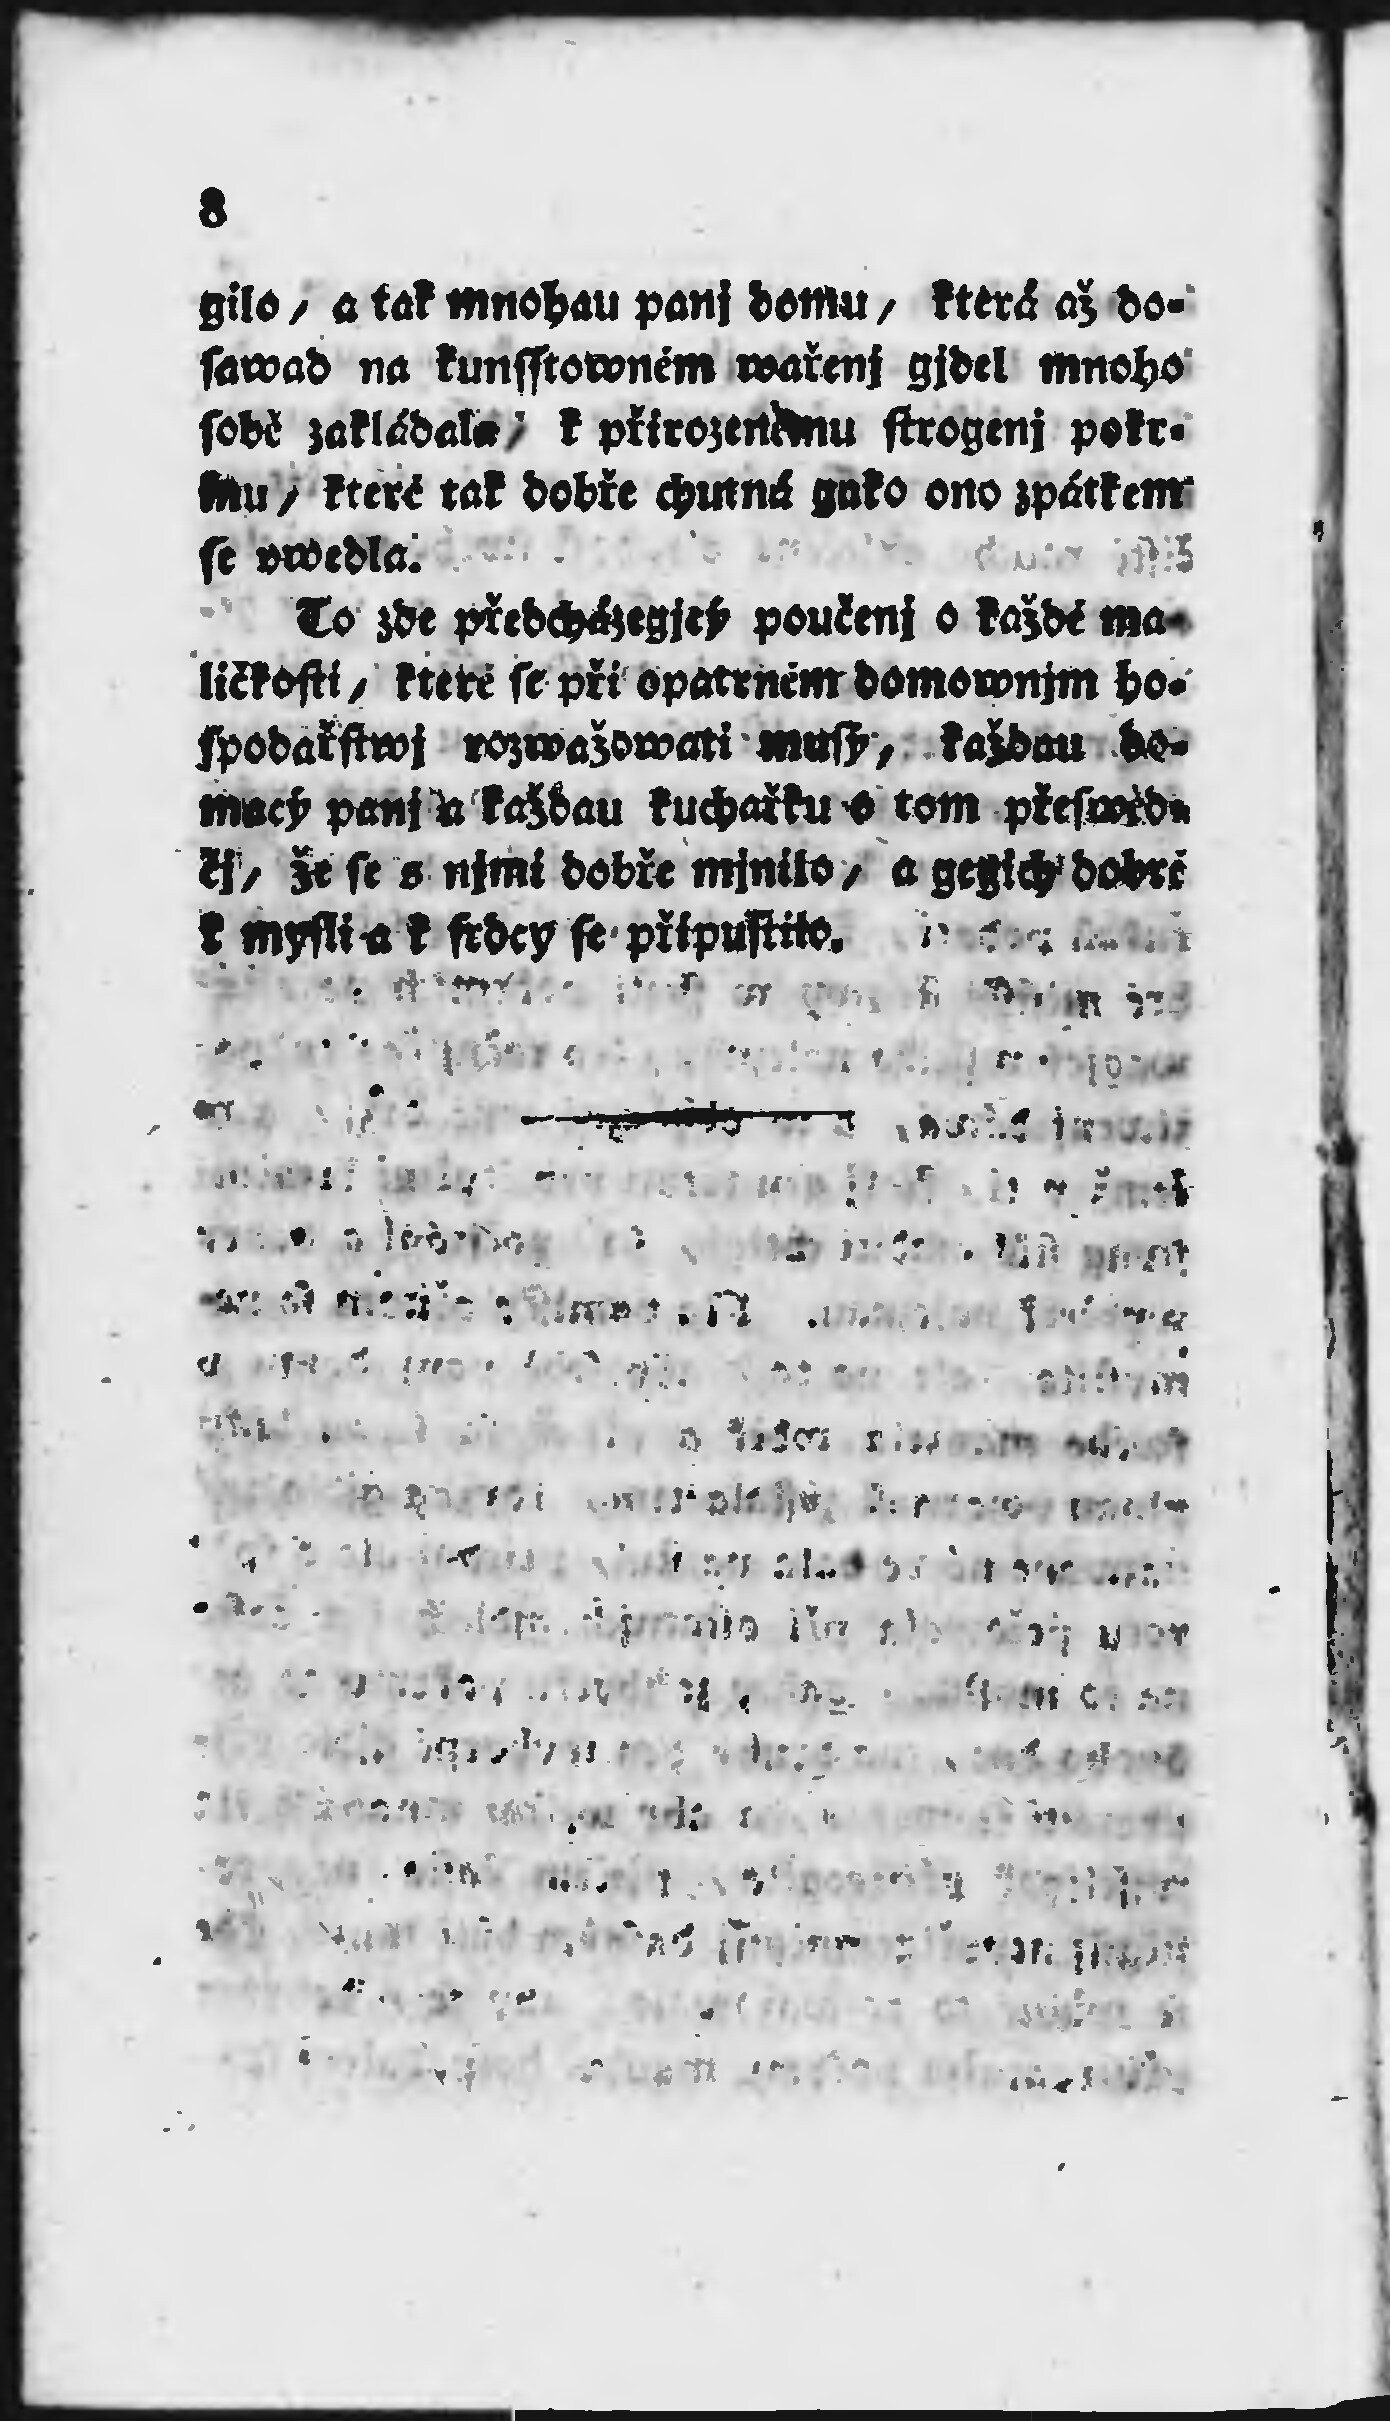 8
gilo, a tak mnohau panj domu, která až do-
sawad na kunsstowném wařenj gjdel mnoho
sobě zakládala, k přirozenému strogenj pokr-
mu, které tak dobře chutná gako ono zpátkem
se vwedla.
To zde předcházegjcý poučenj o každé ma-
ličkosti, které se při opatrném domownjm ho-
spodařstwj rozwažowati musý, každau do-
macý panj a každau kuchařku o tom přeswěd-
čj, že se s njmi dobře mjnilo, a gegich dobré
k mysli a k srdcy se připustilo.